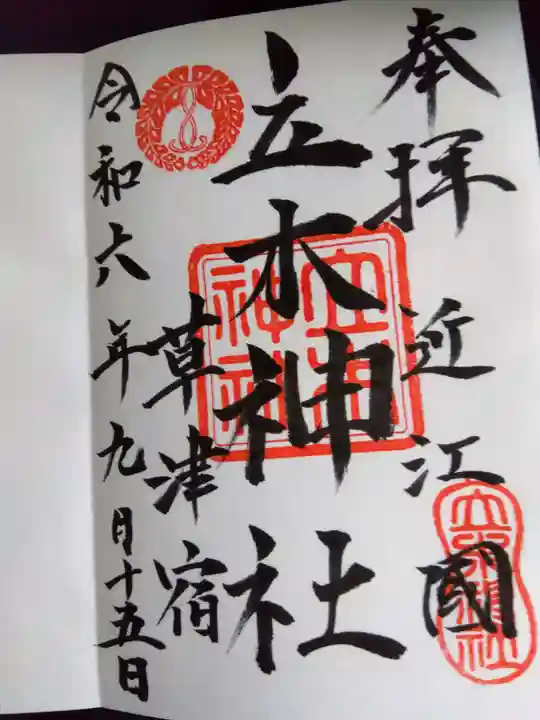 奉拝 近江國
立木神社
草津宿
令和六年九月十五日
立木神社